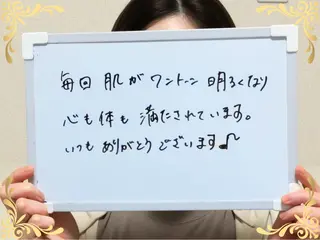 毎回 肌が ワントーン 明るくなり
心も体も 満たされています。
いつも ありがとう ございます♪